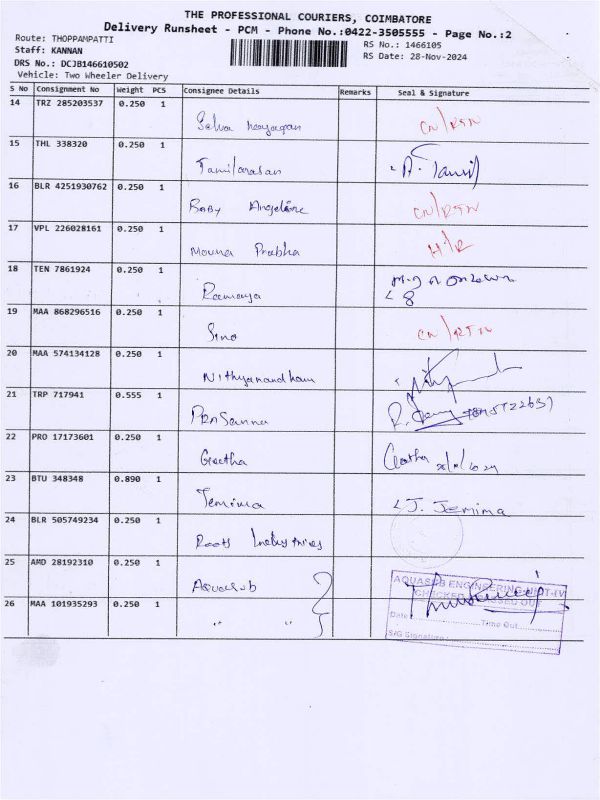 THE PROFESSIONAL COURIERS, COIMBATORE
Delivery Runsheet - PCM - Phone No.:0422-3505555 - Page No.:2
Route: THOPPAMPATTI
RS No.: 1466105
Staff: KANNAN
RS Date: 28-Nov-2024
DRS No.: DCJB146610502
Vehicle: Two Wheeler Delivery
S No Consignment No Weight PCS Consignee Details Remarks Seal & Signature
14 TRZ 285203537 0.250 1
Selva CN/RTN
15 THL 338320 0.250 1
Tamilarasan A. Tamil
16 BLR 4251930762 0.250 1
Baby Angeline CN/RTN
17 VPL 226028161 0.250 1
Mouna Prabha H/R
18 TEN 7861924 0.250 1
Ramaya
19 MAA 868296516 0.250 1
Sino CN/RTN
20 MAA 574134128 0.250 1
Nithyanandham
21 TRP 717941 0.555 1
PRASanna
22 PRO 17173601 0.250 1
Geetha Geetha
23 BTU 348348 0.890 1
Jemima J. Jemima
24 BLR 505749234 0.250 1
Roots Industries
25 AMD 28192310 0.250 1
Aquasub
AQUASUB ENGINEERING UNIT-IV
CHECKED & PASSED OUT
26 MAA 101935293 0.250 1
" "
Date: Time Out
S/G Signature